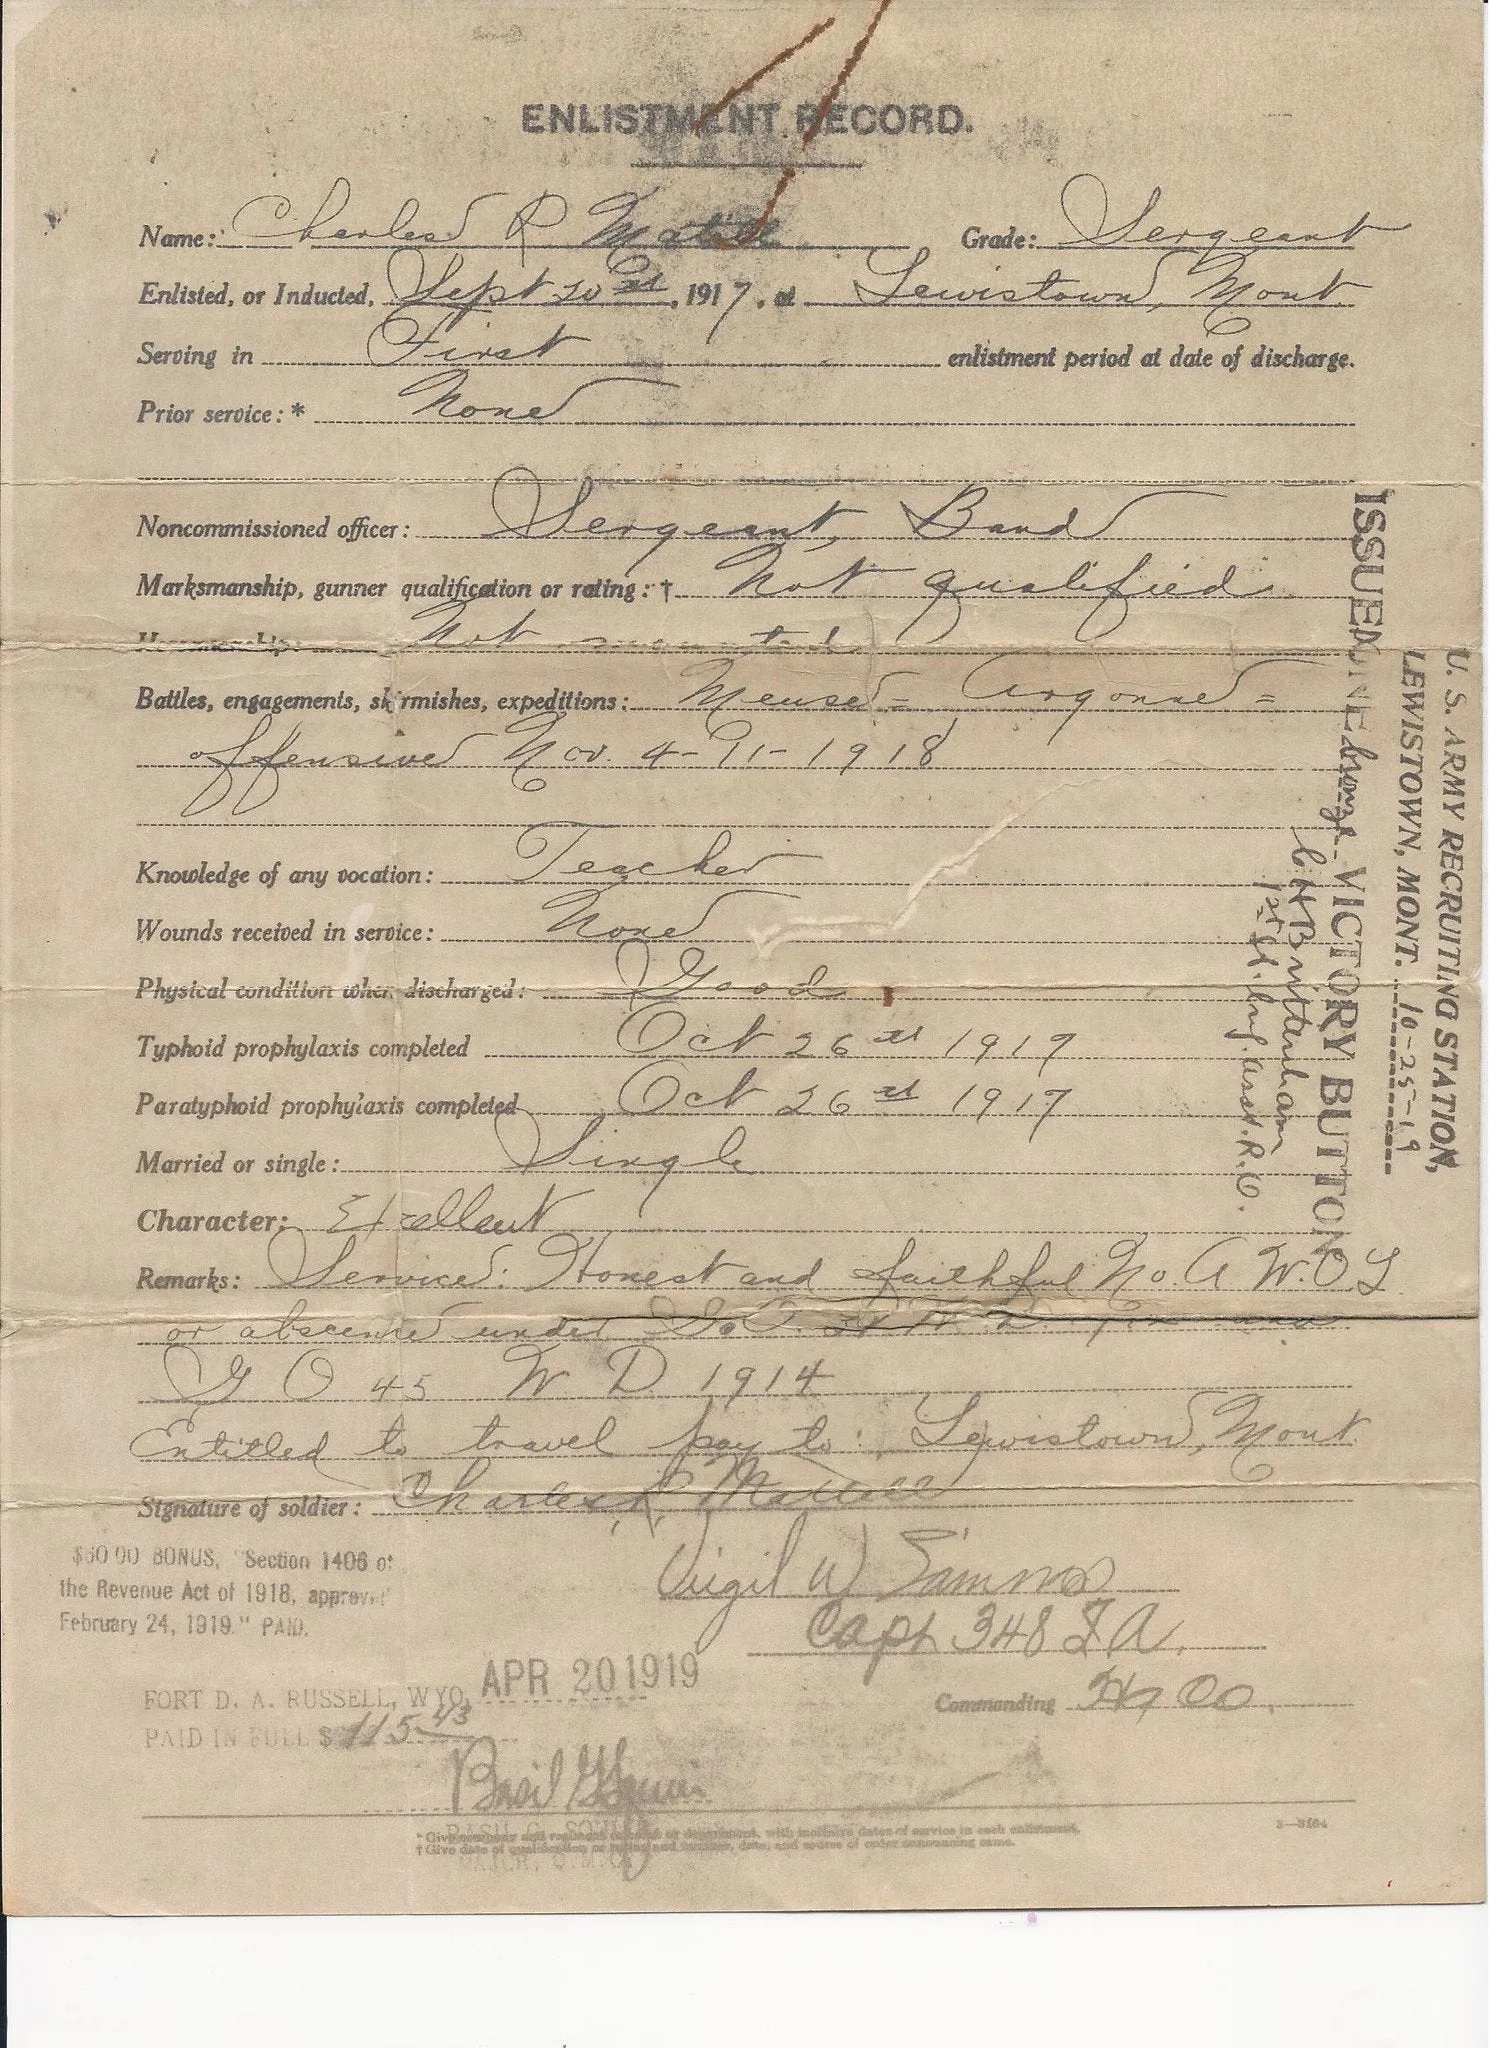 ENLISTMENT RECORD.
Name: Charles R Grade: Sergeant
Enlisted, or Inducted, Sept 20 st, 1917, at Lewistown, Mont.
Serving in First enlistment period at date of discharge.
Prior service: * None
Noncommissioned officer: Sergeant, Band
Marksmanship, gunner qualification or rating: † Not qualified
Horsemanship: Not mounted
Battles, engagements, skirmishes, expeditions: Meuse = Argonne =
offensive Nov. 4-11-1918
Knowledge of any vocation: Teacher
Wounds received in service: None
Physical condition when discharged: Good
Typhoid prophylaxis completed Oct 26 st 1917
Paratyphoid prophylaxis completed Oct 26 st 1917
Married or single: Single
Character: Excellent
Remarks: Service: Honest and faithful No. A.W.O.L
or absence under
G O 45 W D 1914
Entitled to travel pay to: Lewistown, Mont.
Signature of soldier: Charles R.
Virgil W
Capt 348 F A.
Commanding
$60.00 BONUS, "Section 1406 of
the Revenue Act of 1918, approved
February 24, 1919." PAID.
APR 20 1919
FORT D. A. RUSSELL, WYO.
PAID IN FULL $ 115 43
Basil
* Give company and regiment or corps or department, with inclusive dates of service in each enlistment.
† Give date of qualification or rating and number, date, and source of order announcing same.
3—3164
U. S. ARMY RECRUITING STATION,
LEWISTOWN, MONT. 10-25-19
ISSUED ONE bronze VICTORY BUTTON
C H Brittenham
1st Lt. Inf. Asst. R.O.